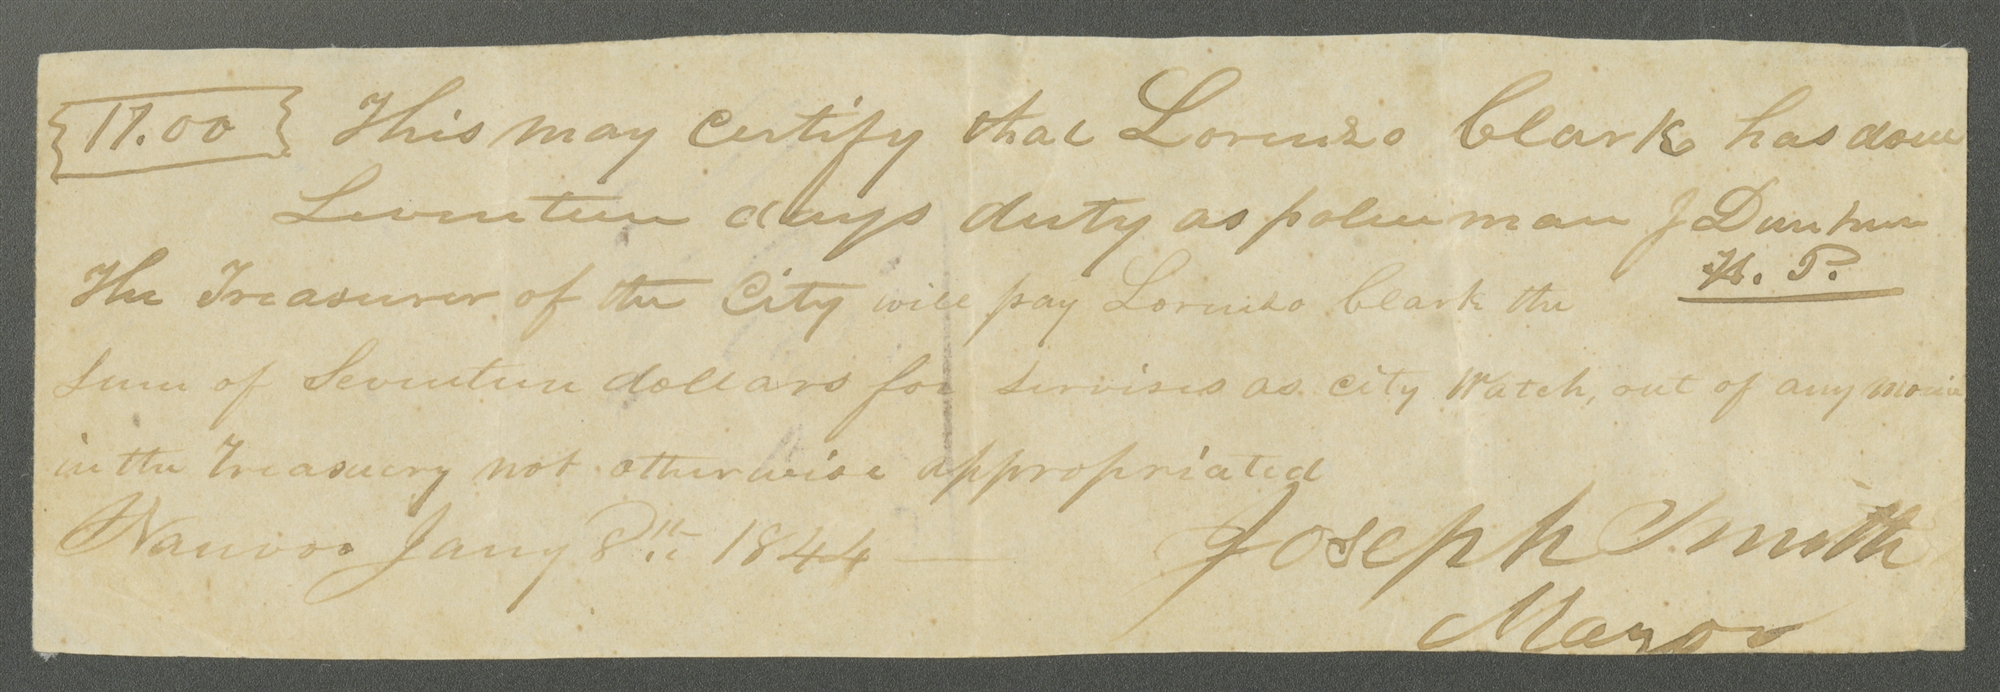 17.00 This may certify that Lorenzo Clark has done
Seventeen days duty as policeman J Dunham
H. P.
The Treasurer of the City will pay Lorenzo Clark the
sum of Seventeen dollars for servises as City Watch, out of any
in the Treasuery not otherwise appropriated
Nauvoo Jany 8th 1844 —
Joseph Smith
Mayor